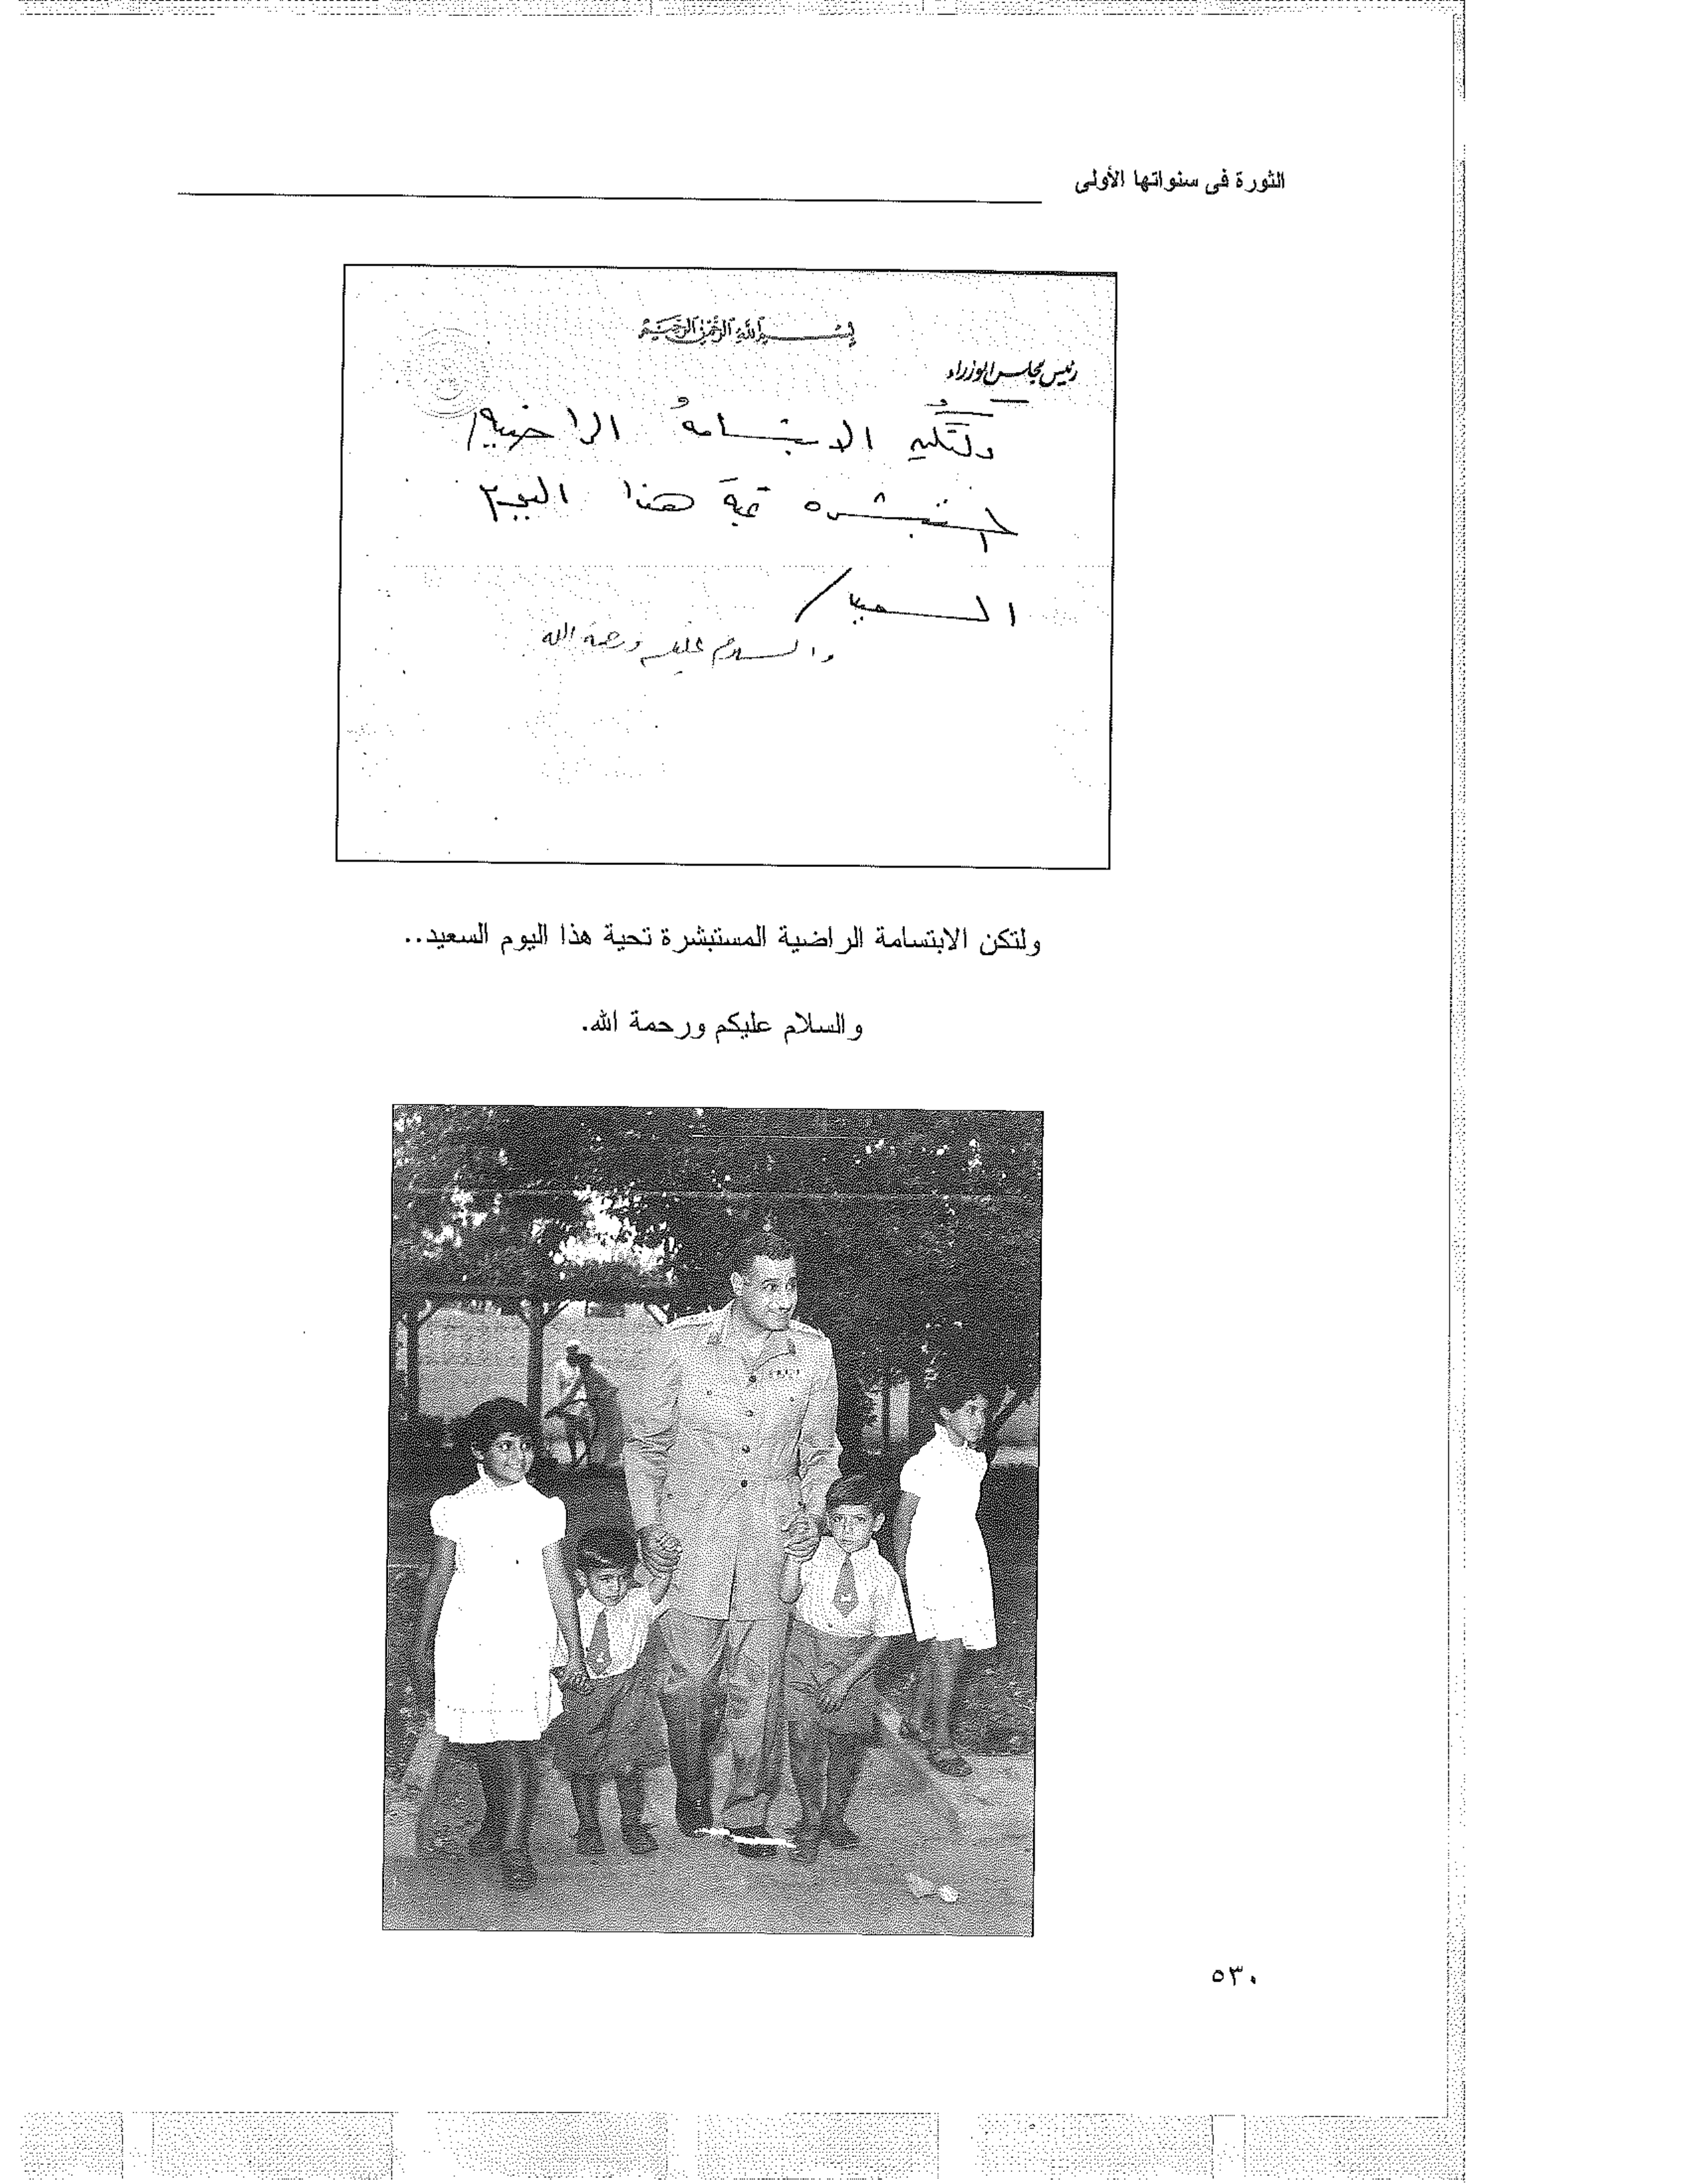 الثورة فى سنواتها الأولى
بسم الله الرحمن الرحيم
رئيس مجلس الوزراء
ولتكن الابتسامةُ الراضية
المستبشرة تحية هذا اليوم
السعيد
والسلام عليكم ورحمة الله
ولتكن الابتسامة الراضية المستبشرة تحية هذا اليوم السعيد..
والسلام عليكم ورحمة الله.
٥٣٠